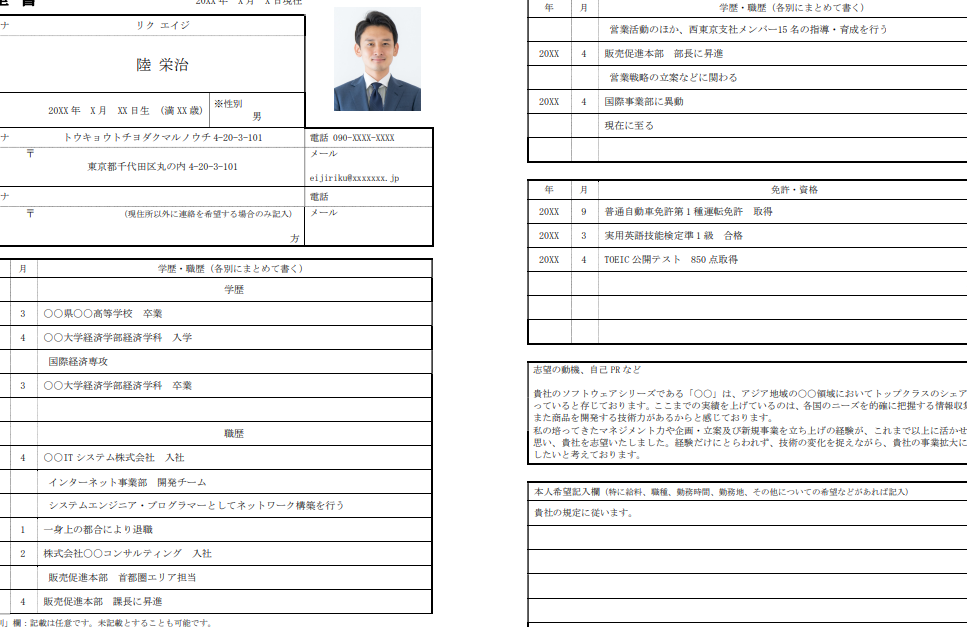 歴 書
20XX 年 X 月 X 日現在
ナ リク エイジ
陸 栄治
20XX 年 X 月 XX 日生 (満 XX 歳)
※性別
男
ナ トウキョウトチヨダクマルノウチ 4-20-3-101
電話 090-XXXX-XXXX
〒
東京都千代田区丸の内 4-20-3-101
メール
eijiriku@xxxxxxx.jp
ナ
電話
〒 (現住所以外に連絡を希望する場合のみ記入)
方
メール
月 学歴・職歴(各別にまとめて書く)
学歴
3 〇〇県〇〇高等学校 卒業
4 〇〇大学経済学部経済学科 入学
国際経済専攻
3 〇〇大学経済学部経済学科 卒業
職歴
4 〇〇IT システム株式会社 入社
インターネット事業部 開発チーム
システムエンジニア・プログラマーとしてネットワーク構築を行う
1 一身上の都合により退職
2 株式会社〇〇コンサルティング 入社
販売促進本部 首都圏エリア担当
4 販売促進本部 課長に昇進
」欄:記載は任意です。未記載とすることも可能です。
年 月 学歴・職歴(各別にまとめて書く)
営業活動のほか、西東京支社メンバー15 名の指導・育成を行う
20XX 4 販売促進本部 部長に昇進
営業戦略の立案などに関わる
20XX 4 国際事業部に異動
現在に至る
年 月 免許・資格
20XX 9 普通自動車免許第 1 種運転免許 取得
20XX 3 実用英語技能検定準 1 級 合格
20XX 4 TOEIC 公開テスト 850 点取得
志望の動機、自己 PR など
貴社のソフトウェアシリーズである「〇〇」は、アジア地域の〇〇領域においてトップクラスのシェア
っていると存じております。ここまでの実績を上げているのは、各国のニーズを的確に把握する情報収
また商品を開発する技術力があるからと感じております。
私の培ってきたマネジメント力や企画・立案及び新規事業を立ち上げの経験が、これまで以上に活かせ
思い、貴社を志望いたしました。経験だけにとらわれず、技術の変化を捉えながら、貴社の事業拡大に
したいと考えております。
本人希望記入欄(特に給料、職種、勤務時間、勤務地、その他についての希望などがあれば記入)
貴社の規定に従います。